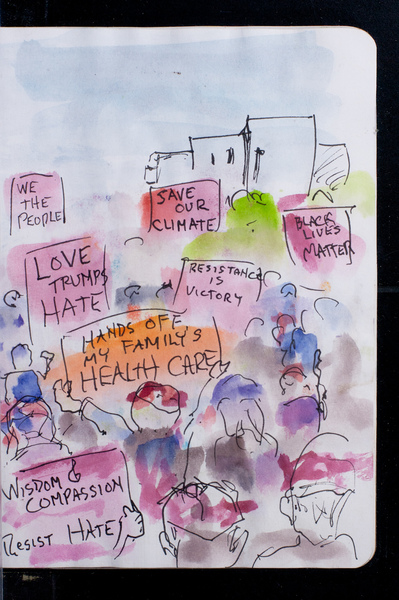 WE
THE
PEOPLE
SAVE
OUR
CLIMATE
BLACK
LIVES
MATTER
LOVE
TRUMPS
HATE
RESISTANCE
IS
VICTORY
HANDS OFF
MY FAMILY'S
HEALTH CARE
WISDOM &
COMPASSION
RESIST HATE